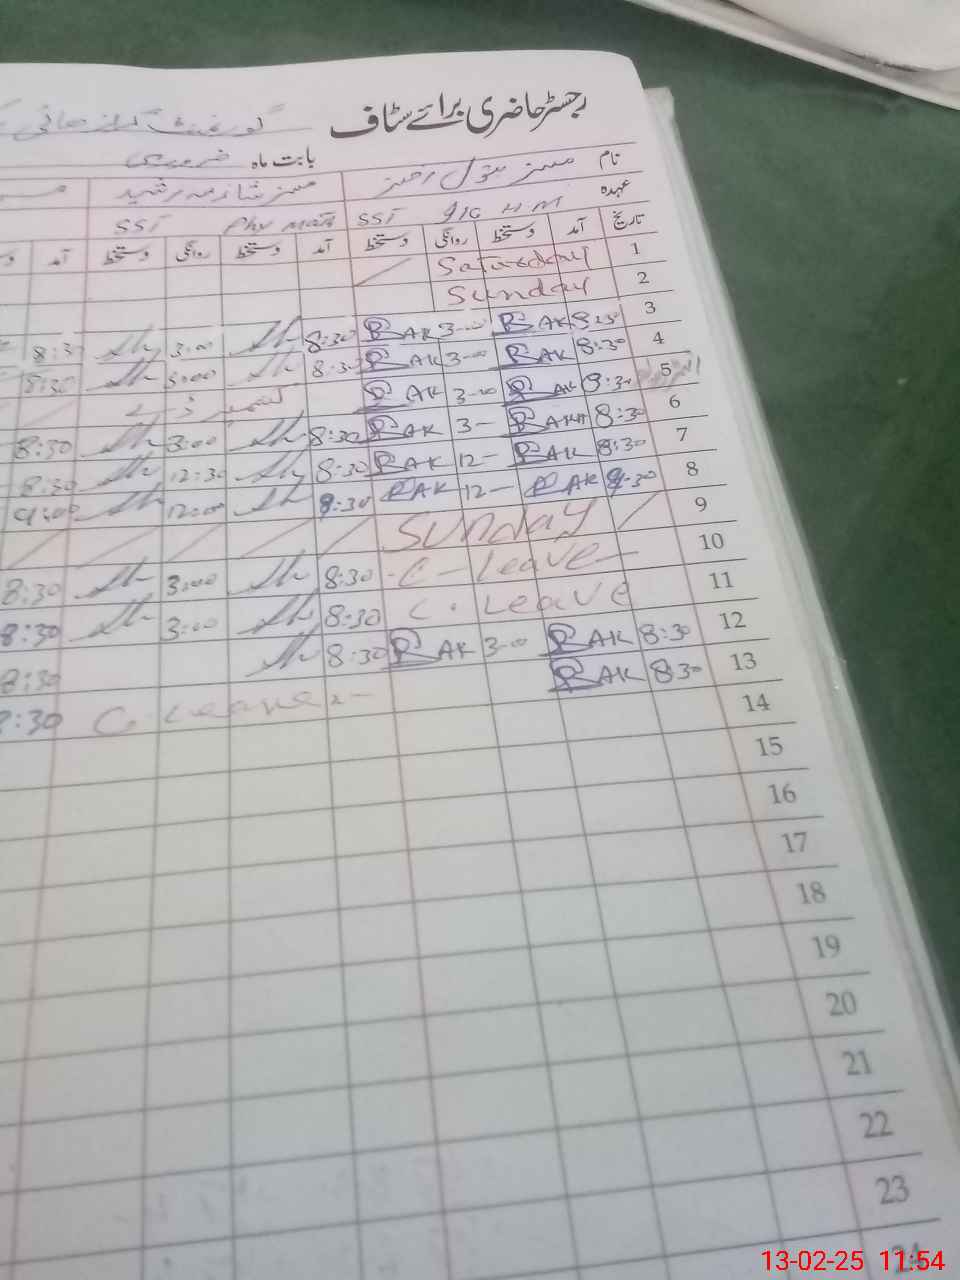 رجسٹر حاضری برائے سٹاف
گورنمنٹ گرلز ہائی
بابت ماہ فروری
نام مسز بتول مسز شازیہ رشید
عہدہ I/C H.M SST Phy Math SST
تاریخ آمد دستخط روانگی دستخط آمد دستخط روانگی دستخط آمد
1 Saturday
2 Sunday
3 RAK 3-00 RAK 8:30 3:00 8:30
4 8:30 RAK 3-00 RAK 8:30 3:00 8:30
5 8:30 RAK 3-00 RAK کشمیر ڈے
6 8:30 RAK 3- RAK 8:30 3:00 8:30
7 8:30 RAK 12- RAK 8:30 12:30 8:30
8 9:30 RAK 12- RAK 9:30 12:00 9:00
9 Sunday
10 C-Leave 8:30 3:00 8:30
11 C. Leave 8:30 3:00 8:30
12 8:30 RAK 3-00 RAK 8:30 8:30
13 8:30 RAK C. Leave 8:30
14
15
16
17
18
19
20
21
22
23
24
13-02-25 11:54